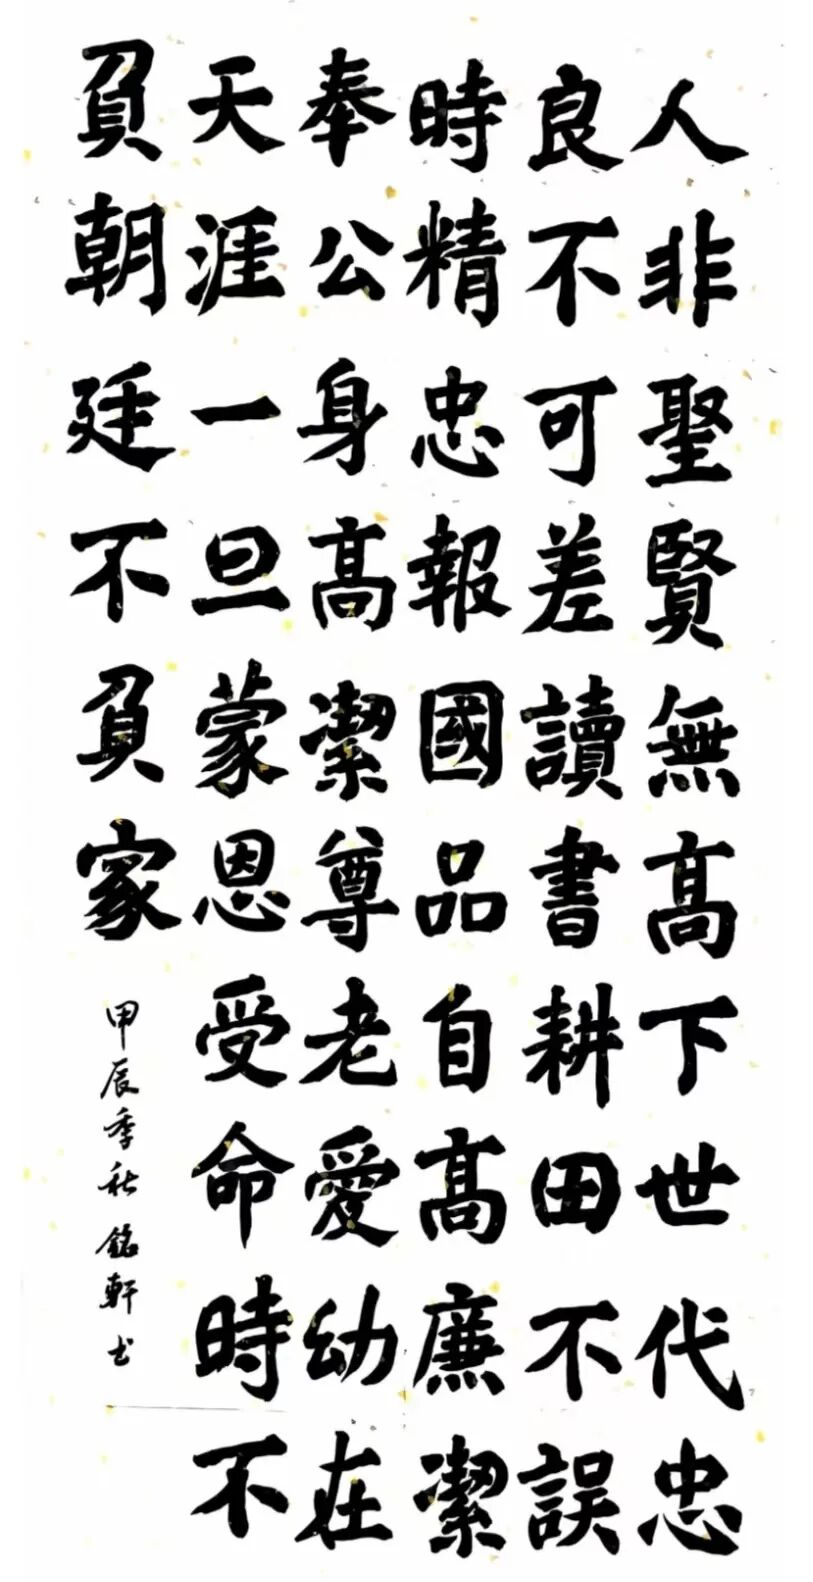 人非聖賢無高下世代忠
良不可差讀書耕田不誤
時精忠報國品自高廉潔
奉公身高潔尊老愛幼在
天涯一旦蒙恩受命時不
負朝廷不負家
甲辰季秋銘軒书